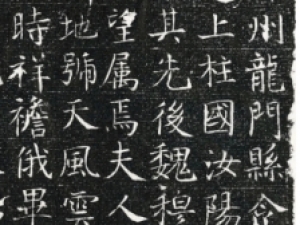 州龍門縣
上柱國汝陽
其先後魏穆
望属焉夫人
地號天風雲
時祥襜俄畢